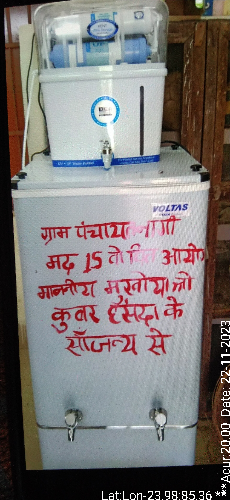 VOLTAS
ग्राम पंचायत
मद 15 वी वित्त आयोग
माननीय मुखीया जी
कुवर हंसदा के
सौजन्य से
Lat:Lon-23.98:85.36
**Acur:20.00 Date: 22-11-2023